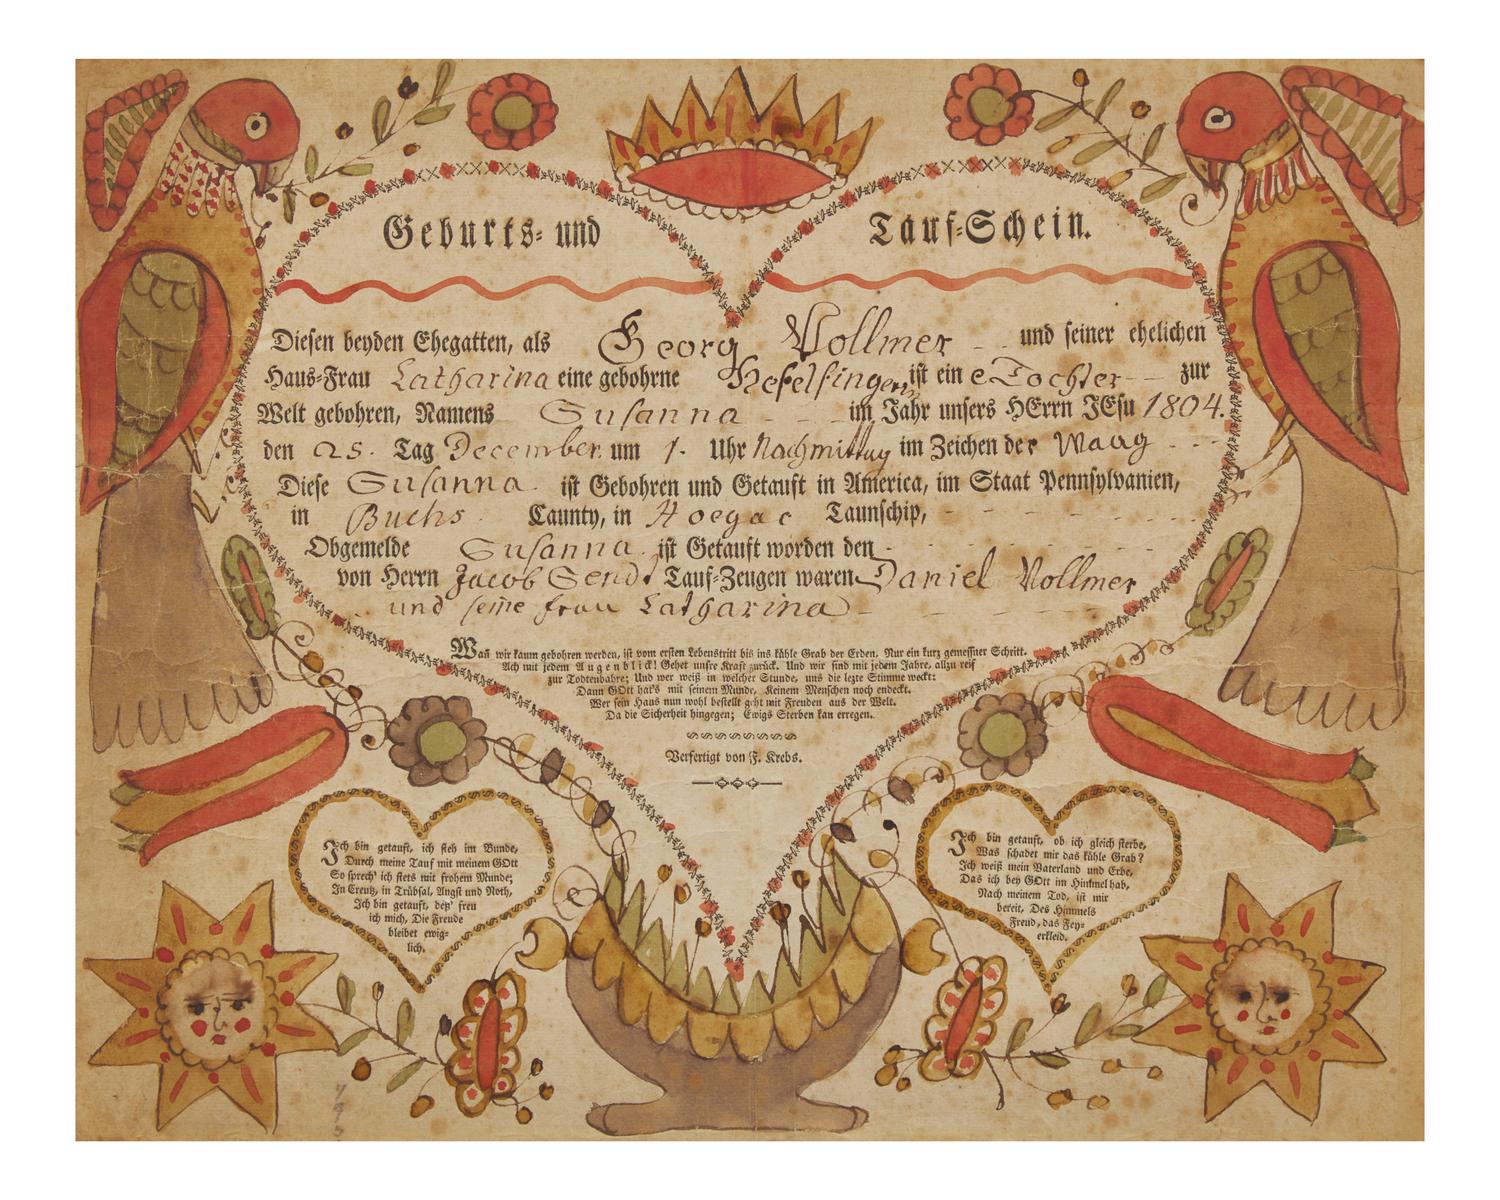 Geburts- und Tauf-Schein.
Diesen beyden Ehegatten, als Georg Vollmer und seiner ehelichen
Haus-Frau Catharina eine gebohrne Hefelfingerin, ist ein e Tochter zur
Welt gebohren, Namens Susanna im Jahr unsers HErrn JEsu 1804.
den 25. Tag December um 1. Uhr Nachmittag im Zeichen der Waag
Diese Susanna ist Gebohren und Getauft in America, im Staat Pennsylvanien,
in Buchs Caunty, in Taunschip,
Obgemelde Susanna ist Getauft worden den
von Herrn Jacob Tauf-Zeugen waren Daniel Vollmer
und seine frau Catharina
Wañ wir kaum gebohren werden, ist vom ersten Lebenstritt bis ins kühle Grab der Erden, Nur ein kurz gemeßner Schritt.
Ach mit jedem Augenblick! Gehet unsre Kraft zurück. Und wir sind mit jedem Jahre, allzu reif
zur Todtenbahre; Und wer weiß in welcher Stunde, uns die lezte Stimme weckt:
Dann GOtt hat's mit seinem Munde, Keinem Menschen noch endeckt.
Wer sein Haus nun wohl bestellt geht mit Freuden aus der Welt.
Da die Sicherheit hingegen; Ewigs Sterben kan erregen.
Verfertigt von F. Krebs.
Ich bin getauft, ich steh im Bunde,
Durch meine Tauf mit meinem GOtt
So sprech' ich stets mit frohem Munde;
In Creutz, in Trübsal, Angst und Noth,
Ich bin getauft, deß' freu
ich mich, Die Freude
bleibet ewig-
lich.
Ich bin getauft, ob ich gleich sterbe,
Was schadet mir das kühle Grab?
Ich weiß mein Vaterland und Erbe,
Das ich bey GOtt im Himmel hab,
Nach meinem Tod, ist mir
bereit, Des Himmels
Freud, das Fey-
erkleid.